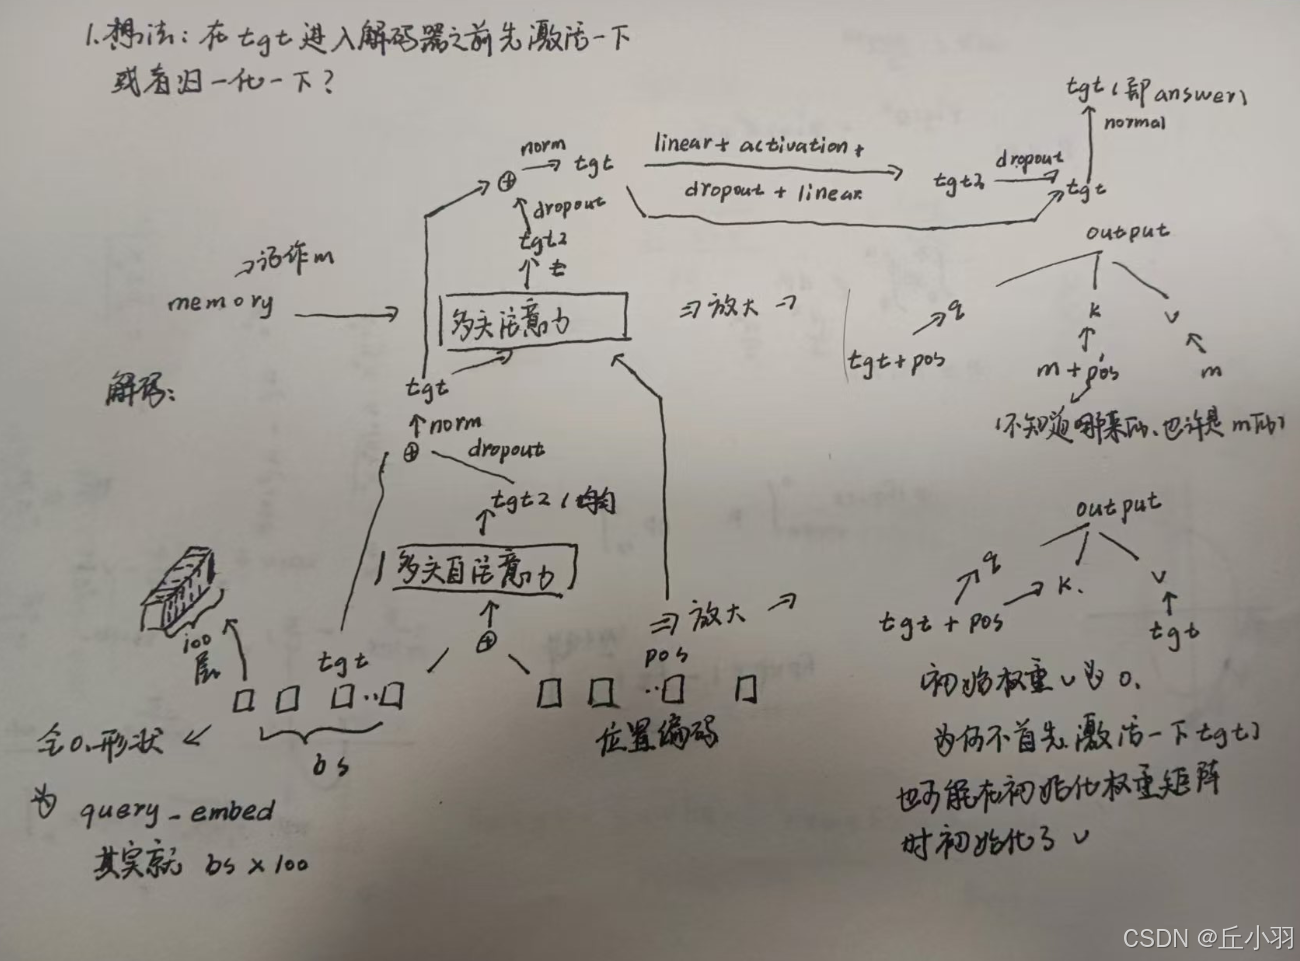 1.想法：在tgt进入解码器之前先激活一下
或者归一化一下？
tgt(即answer)
normal
norm
tgt
linear + activation +
dropout + linear
tgt3
dropout
tgt
dropout
tgt2
记作m
memory
多头注意力
⇒放大→
output
q
k
v
tgt+pos
m + pos
m
(不知道哪来的、也许是m的)
解码：
tgt
norm
dropout
tgt2
多头自注意力
⇒放大→
output
q
k.
v
tgt + pos
tgt
100
层
tgt
pos
位置编码
bs
全0.形状
为 query_embed
其实就 bs x 100
初始权重v为0.
为何不首先激活一下tgt?
也可能在初始化权重矩阵
时初始化了v
CSDN @丘小羽